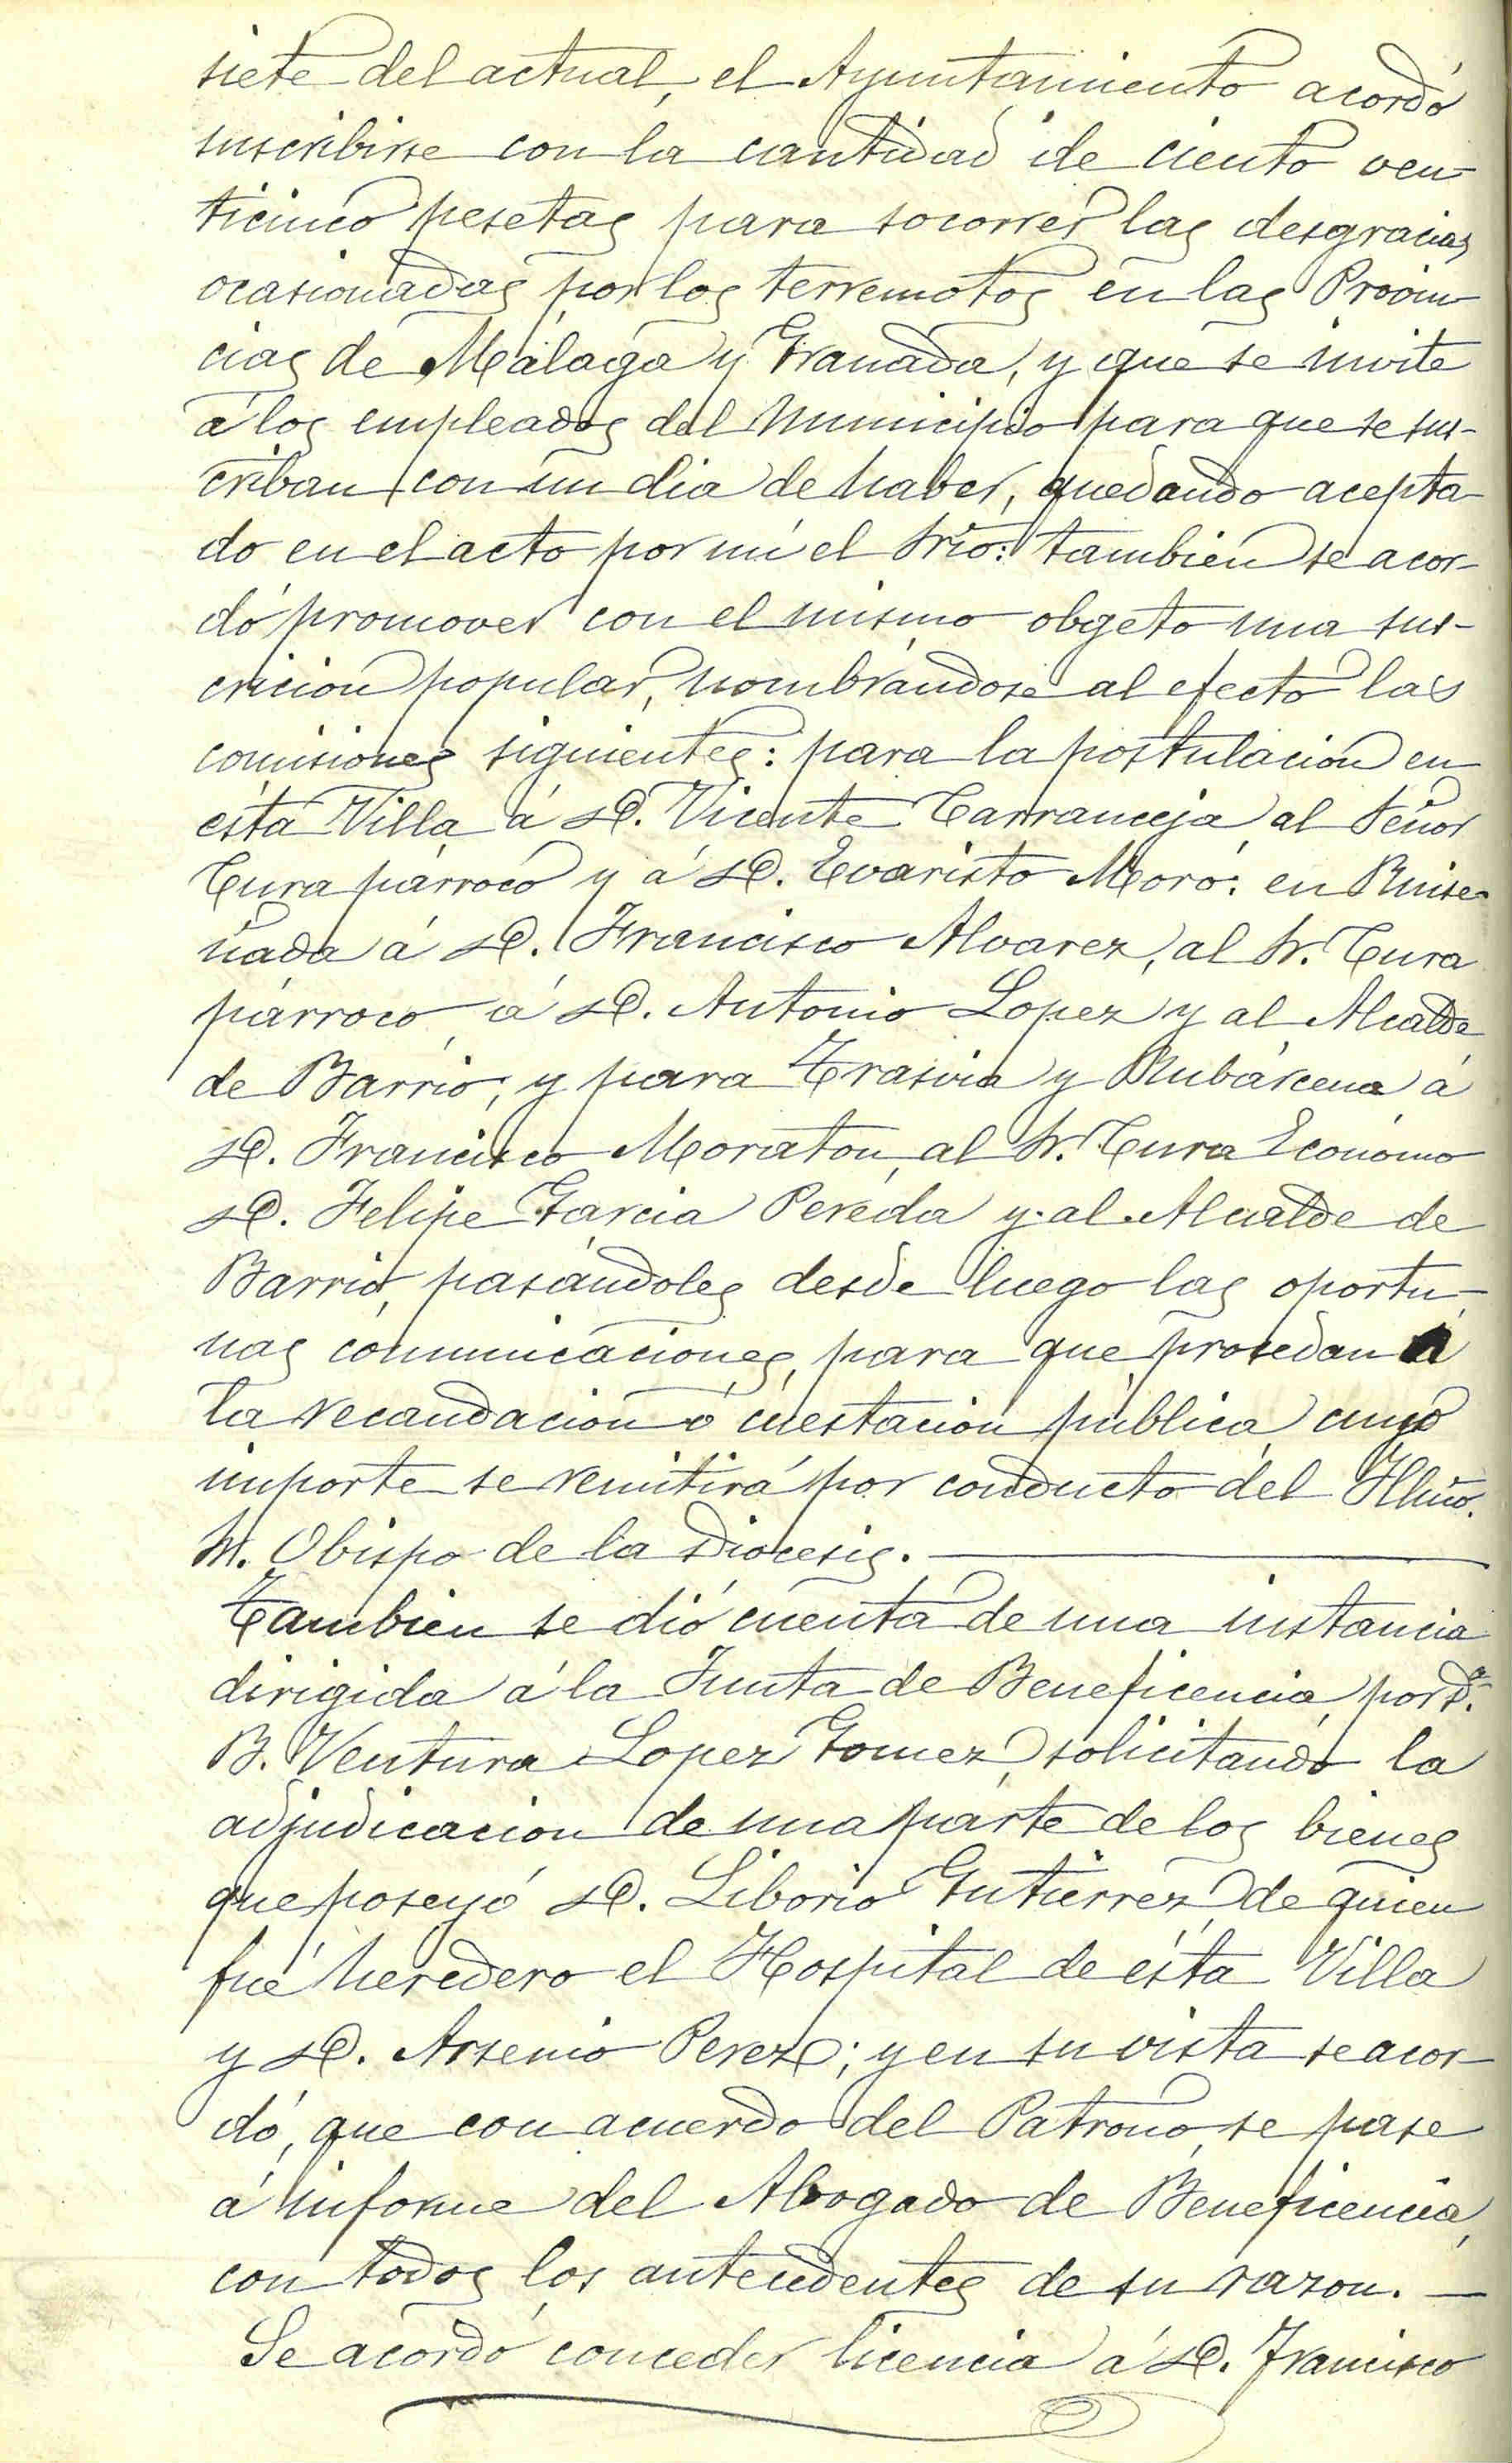 siete del actual, el Ayuntamiento acordó
suscribirse con la cantidad de ciento ven-
ticinco pesetas para socorrer las desgracias
ocasionadas por los terremotos en las Provin-
cias de Málaga y Granada, y que se invite
á los empleados del Municipio para que se sus-
criban con un dia de haber, quedando acepta-
do en el acto por mí el Srio: tambien se acor-
dó promover con el mismo obgeto una sus-
cricion popular, nombrándose al efecto las
comisiones siguientes: para la postulacion en
ésta Villa á D. Vicente Carranceja al Señor
Cura párroco y á D. Evaristo Moro: en Ruise-
ñada á D. Francisco Alvarez, al Sr. Cura
párroco, á D. Antonio Lopez y al Alcalde
de Barrio; y para Trasvia y Rubárcena á
D. Francisco Moraton, al Sr. Cura Ecónomo
D. Felipe Garcia Pereda y al Alcalde de
Barrio, pasándoles desde luego las oportu-
nas comunicaciones, para que procedan á
la recaudacion ó cuestacion pública, cuyo
importe se remitirá por conducto del Illmo.
Sr. Obispo de la Diocesis.
Tambien se dió cuenta de una instancia
dirigida á la Junta de Beneficencia, por D.
B. Ventura Lopez Gomez, solicitando la
adjudicacion de una parte de los bienes
que poseyó D. Liborio Gutierrez, de quien
fué heredero el Hospital de ésta Villa
y D. Arsenio Perez; y en su vista se acor-
dó, que con acuerdo del Patrono, se pase
á informe del Abogado de Beneficencia,
con todos los antecedentes de su razon.
Se acordó conceder licencia á D. Francisco